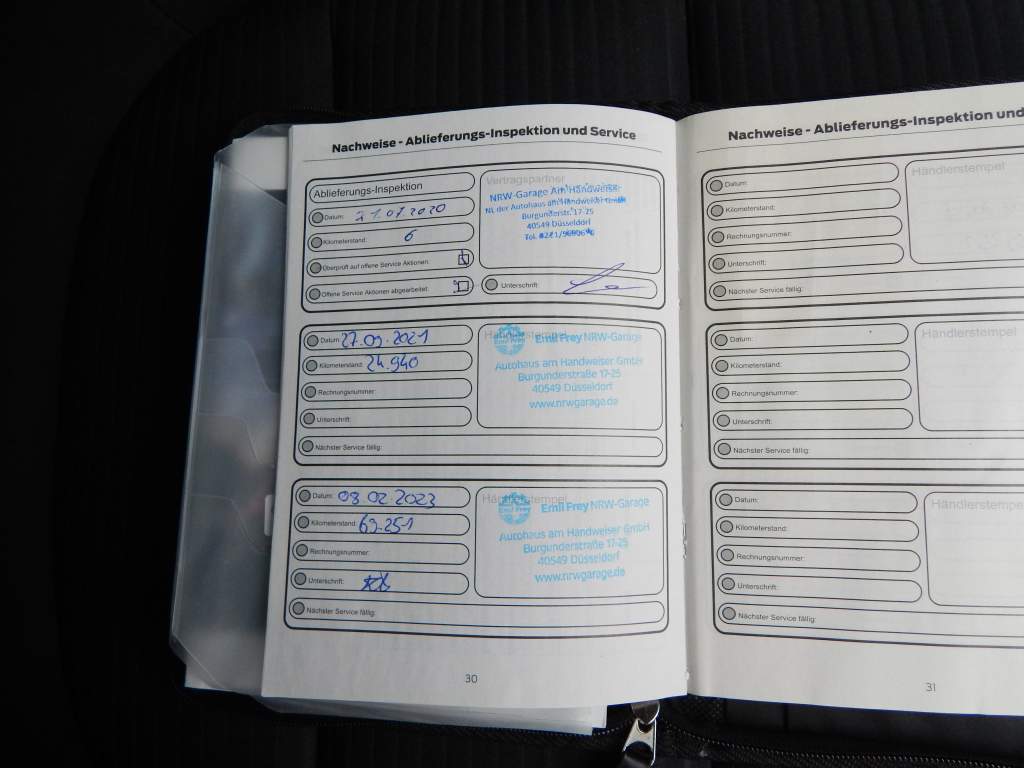 Nachweise - Ablieferungs-Inspektion und Service
Ablieferungs-Inspektion
Datum: 21.07.2020
Kilometerstand: 6
Überprüft auf offene Service Aktionen:
Offene Service Aktionen abgearbeitet:
Vertragspartner
NRW-Garage Am Handweiser
NL der Autohaus am Handweiser
Burgunderstr. 17-25
40549 Düsseldorf
Unterschrift:
Datum: 27.09.2021
Kilometerstand: 24.940
Rechnungsnummer:
Unterschrift:
Nächster Service fällig:
Händlerstempel
Emil Frey
Emil Frey NRW-Garage
Autohaus am Handweiser GmbH
Burgunderstraße 17-25
40549 Düsseldorf
www.nrwgarage.de
Datum: 08.02.2023
Kilometerstand: 63.251
Rechnungsnummer:
Unterschrift:
Nächster Service fällig:
Händlerstempel
Emil Frey
Emil Frey NRW-Garage
Autohaus am Handweiser GmbH
Burgunderstraße 17-25
40549 Düsseldorf
www.nrwgarage.de
30
Nachweise - Ablieferungs-Inspektion und
Datum:
Kilometerstand:
Rechnungsnummer:
Unterschrift:
Nächster Service fällig:
Händlerstempel
Datum:
Kilometerstand:
Rechnungsnummer:
Unterschrift:
Nächster Service fällig:
Händlerstempel
Datum:
Kilometerstand:
Rechnungsnummer:
Unterschrift:
Nächster Service fällig:
Händlerstempel
31